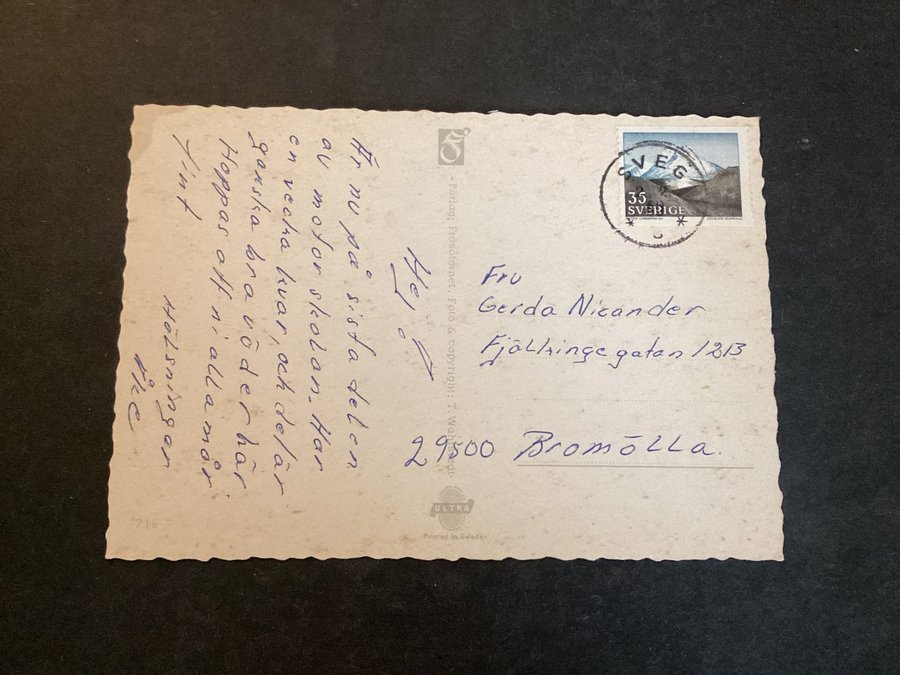 Hej!
Är nu på sista delen
av motorskolan. Har
en vecka kvar, och det är
ganska bra väder här
Hoppas att ni alla mår
fint
Hälsningar
Åke
Förlag: Frösötornet. Foto & copyright: T.
ULTRA
Printed in Sweden
716
SVEG
35
SVERIGE
Fru
Gerda Nicander
Fjälkingegatan 12B
29500 Bromölla.